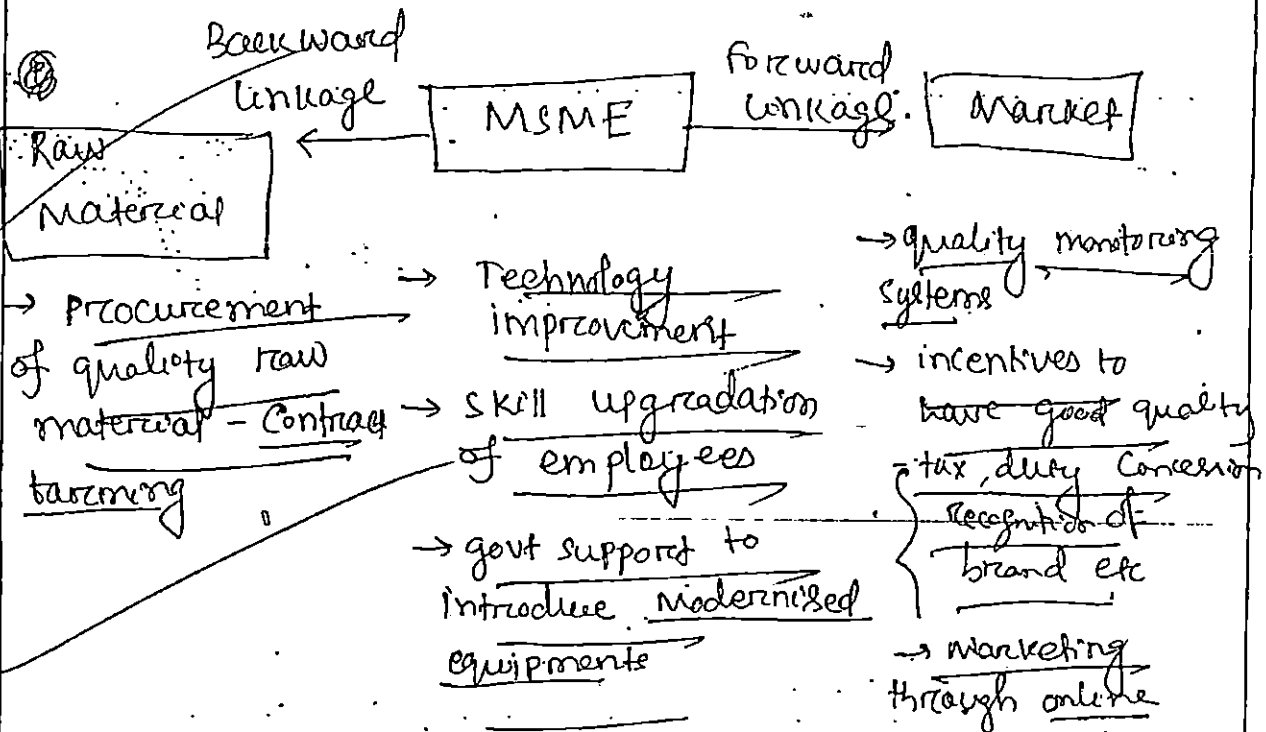 Backward
linkage
Raw
Material
MSME
Forward
linkage.
Market
→ Procurement
of quality raw
material - Contract
farming
→ Technology
improvement
→ skill upgradation
of employees
→ govt support to
introduce Modernised
equipments
→ quality monitoring
systems
→ incentives to
have good quality
- tax, duty Concession
recognition of
brand etc
→ Marketing
through online